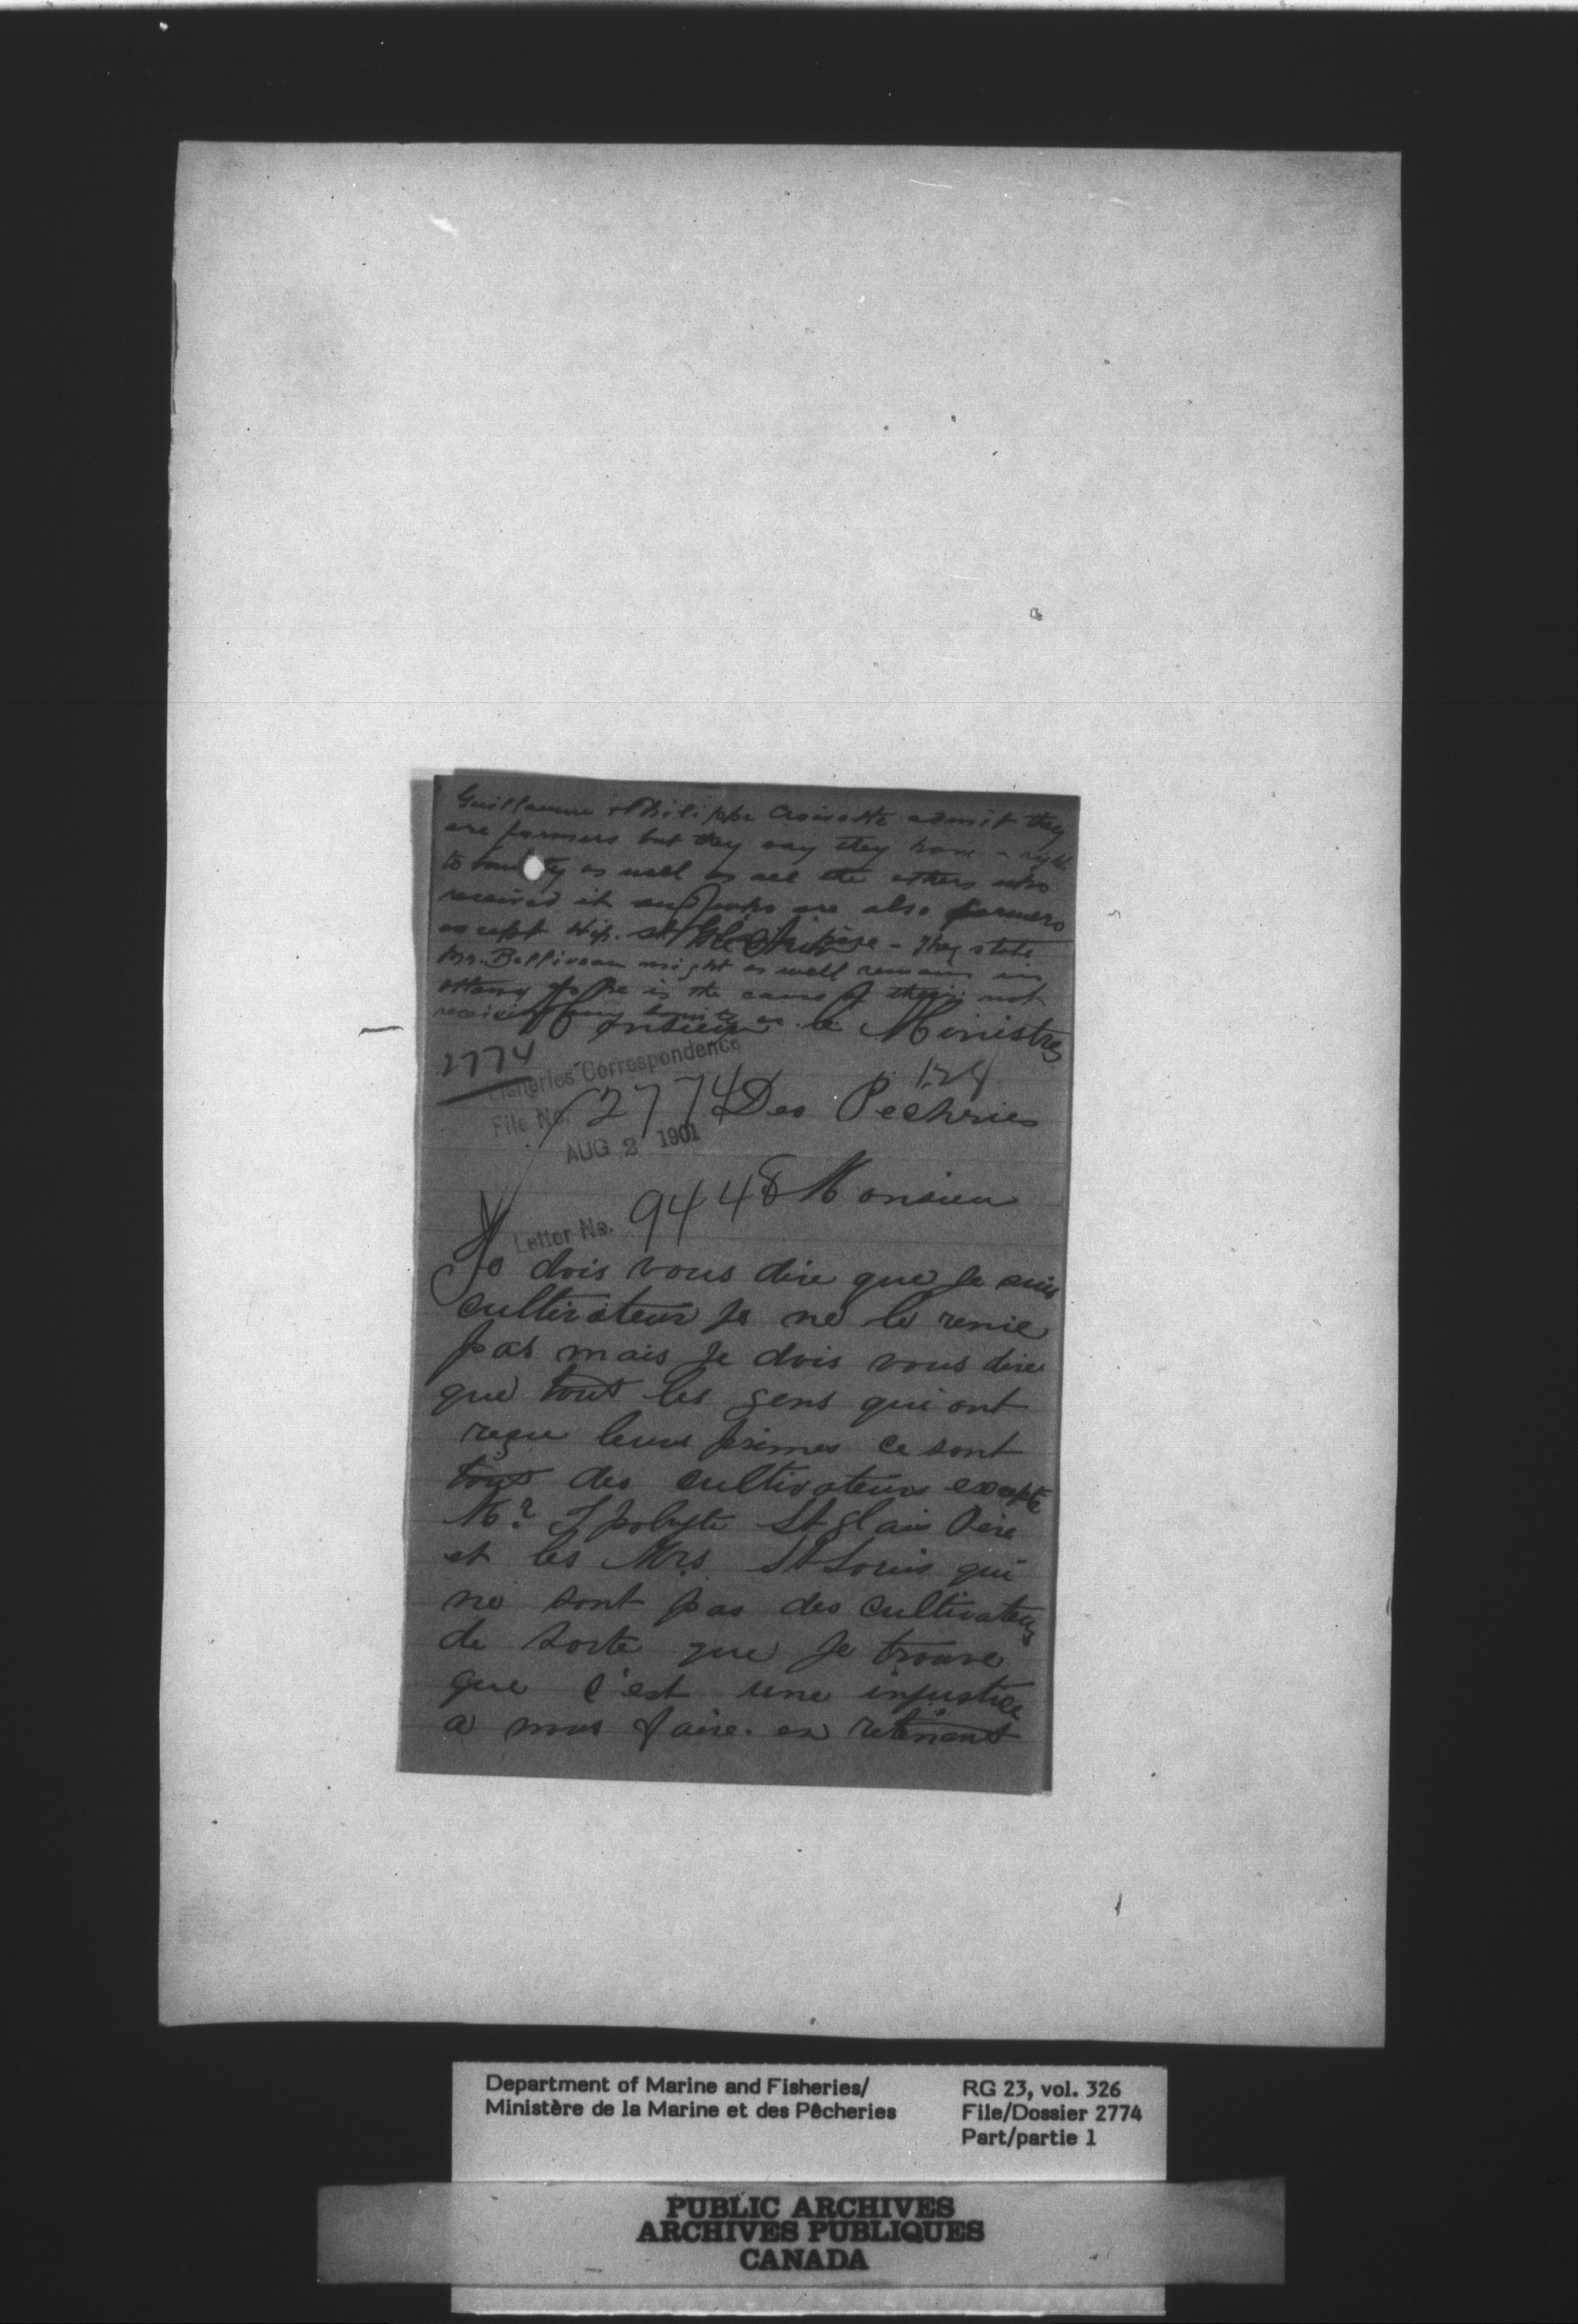 Guillaume & Philippe Croisette admit they
are farmers but they say they have a right
to bounty as well as all the others who
received it and who are also farmers
except Hip. St père - They state
Mr. Belliveau might as well remain in
Ottawa if he is the cause of their not
receiving any bounty
Monsieur le Ministre
2774
Fisheries Correspondence
124
File No. 2774
Des Pechries
AUG 2 1901
Monsieur
Letter No. 9448
Je dois vous dire que Je suis
cultivateur Je ne le renie
pas mais Je dois vous dire
que tout les gens qui ont
reçu leurs primes ce sont
tous des cultivateurs excepté
Mr Ipolyte St Glair Père
et les Mrs. St Louis qui
ne sont pas des cultivateurs
de sorte que Je trouve
que c'est une injustice
a nous faire. en retenant
Department of Marine and Fisheries/
Ministère de la Marine et des Pêcheries
RG 23, vol. 326
File/Dossier 2774
Part/partie 1
PUBLIC ARCHIVES
ARCHIVES PUBLIQUES
CANADA